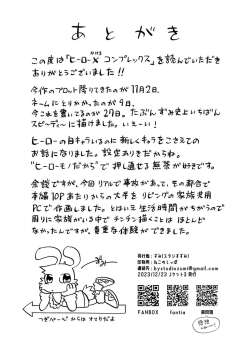 あとがき
この度は「ヒーローX コンプレックス」を読んでいただき
ありがとうございました!!
今作のプロット降りてきたのが11月2日、
ネームにとりかかったのが9日、
今これを書いてるのが29日。たぶんすみ史上いちばん
スピーディーに描けました。いえーい!
ヒーローの自キャラいるのに新しくキャラをこさえての
お話になりました。設定ありきだからね。
"ヒーローモノだから"で押し通せる無茶が好きです。
余談ですが、今回リアルで事故があって、その都合で
本編10Pあたりからの大半をリビングの家族共用
PCで作画しました。とはいえ生活時間がちがうので
周りに家族がいる中でチンチン描くことはほとんど
なかったんですが、貴重な体験ができました。
つぎがーどべからはすてりだよ
2023/12/23
FANBOX
fantia